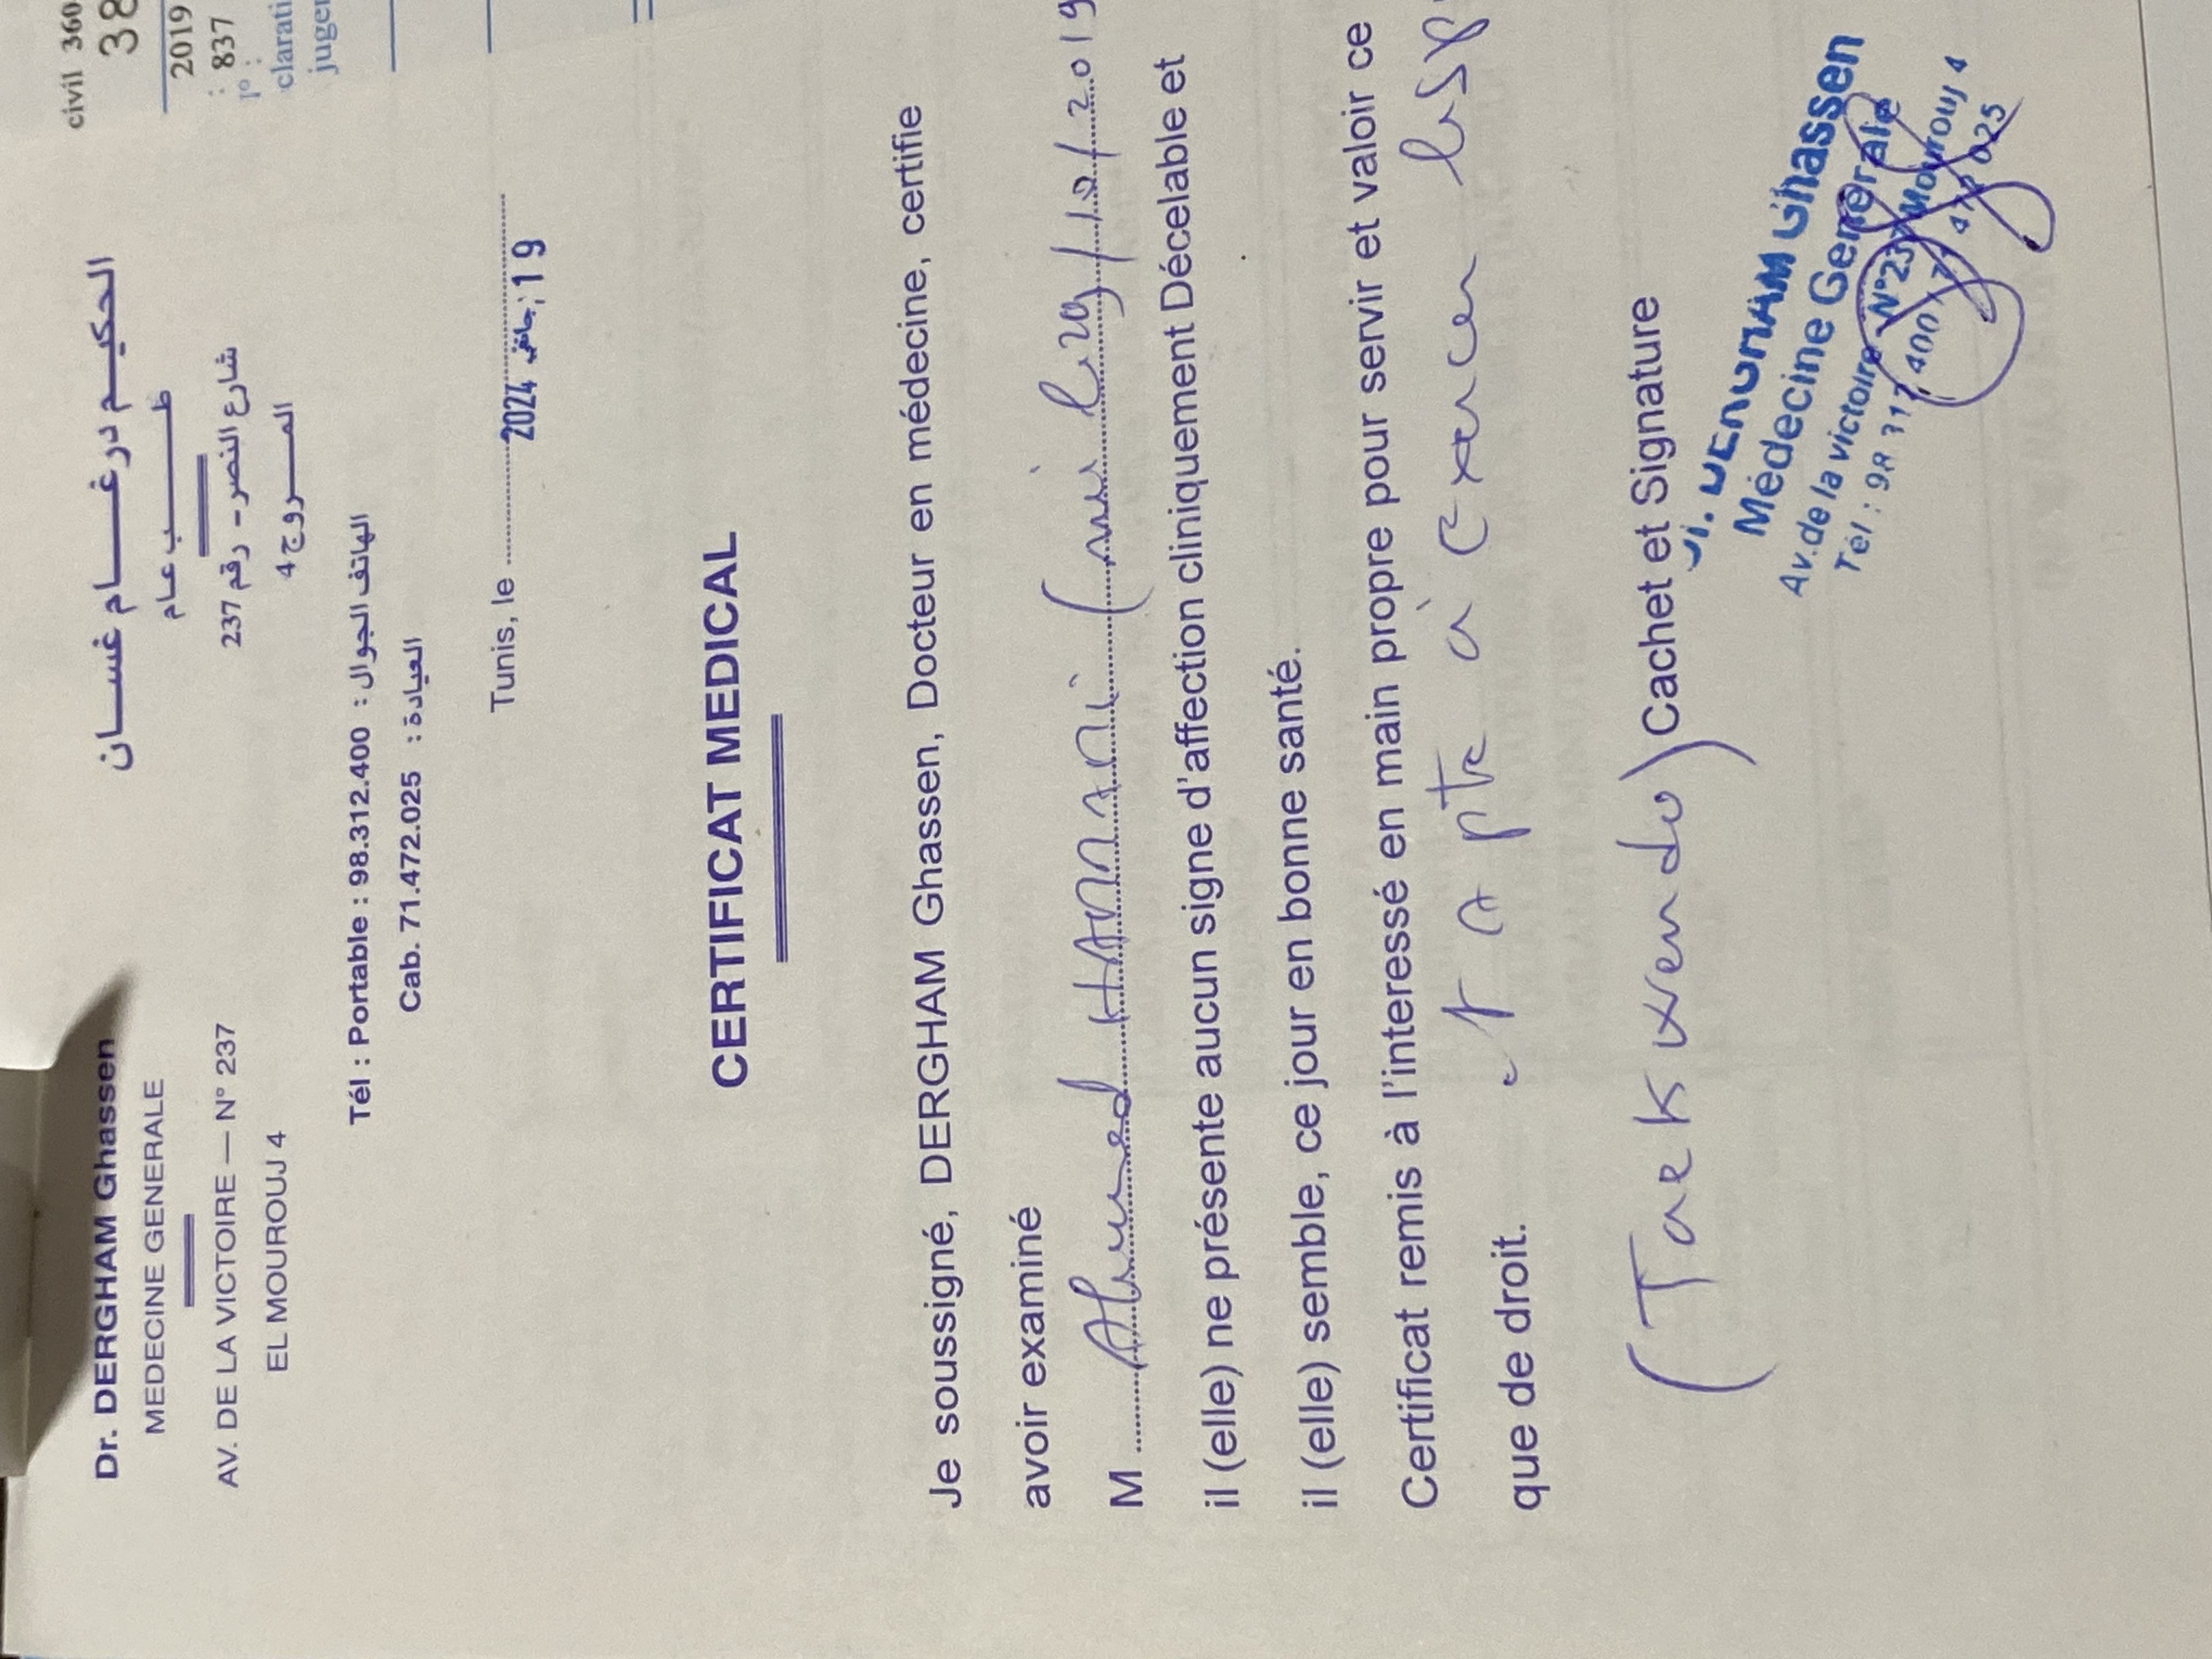 Dr. DERGHAM Ghassen
MEDECINE GENERALE
AV. DE LA VICTOIRE — N° 237
EL MOUROUJ 4
الحكيم درغام غسان
طب عام
شارع النصر - رقم 237
المروج 4
civil 360
38
2019
: 837
clarati
juger
Tél : Portable : 98.312.400 : الهاتف الجوال
Cab. 71.472.025 : العيادة
Tunis, le 19 جانفي 2024
CERTIFICAT MEDICAL
Je soussigné, DERGHAM Ghassen, Docteur en médecine, certifie
avoir examiné
M Ahmed HAMMAMI ( 29/10/2019
il (elle) ne présente aucun signe d'affection cliniquement Décelable et
il (elle) semble, ce jour en bonne santé.
Certificat remis à l'interessé en main propre pour servir et valoir ce
que de droit. apte à exercer
(Taekwendo)
Cachet et Signature
Ghassen
Médecine Generale
Av.de la victoire N°237 Mourouj 4
Tél : 98 312 400